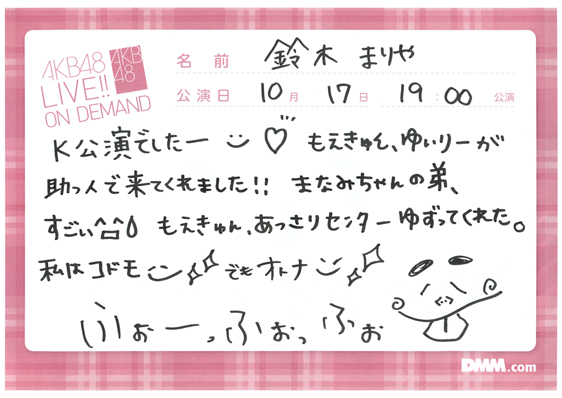 AKB48
LIVE!!
ON DEMAND
AKB
48
名前 鈴木 まりや
公演日 10月 17日 19:00 公演
K公演でしたー ♡ もえきゅん、ゆいりーが
助っ人で来てくれました!! まなみちゃんの弟、
すごい もえきゅん、あっさりセンターゆずってくれた。
私はコドモ でもオトナ
ふぉーっふぉっふぉ
DMM.com